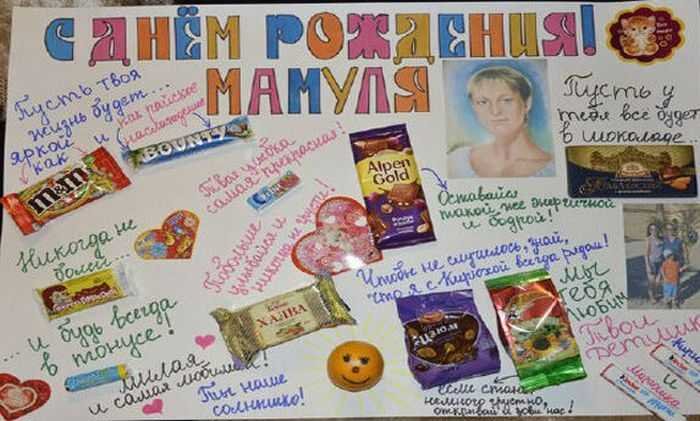 С ДНЁМ РОЖДЕНИЯ!
МАМУЛЯ
Пусть твоя
жизнь будет...
яркой и
как
как райское
наслаждение
m&m's
BOUNTY
Твоя улыбка
самая прекрасная!
Побольше
улыбайся и
никогда не грусти!
Alpen
Gold
Оставайся
такой же энергичной
и бодрой!
Пусть у
тебя всё будет
в шоколаде...
Никогда не
болей...
... и будь всегда
в тонусе!
ХАЛВА
Чтобы не случилось, знай,
что я с Кирюхой всегда рядом!
Изюм
Мы
тебя
любим
Твои
детишки
и
Милая
и самая любимая!
Ты наше
солнышко!
если станет
немного грустно,
открывай и зови нас!